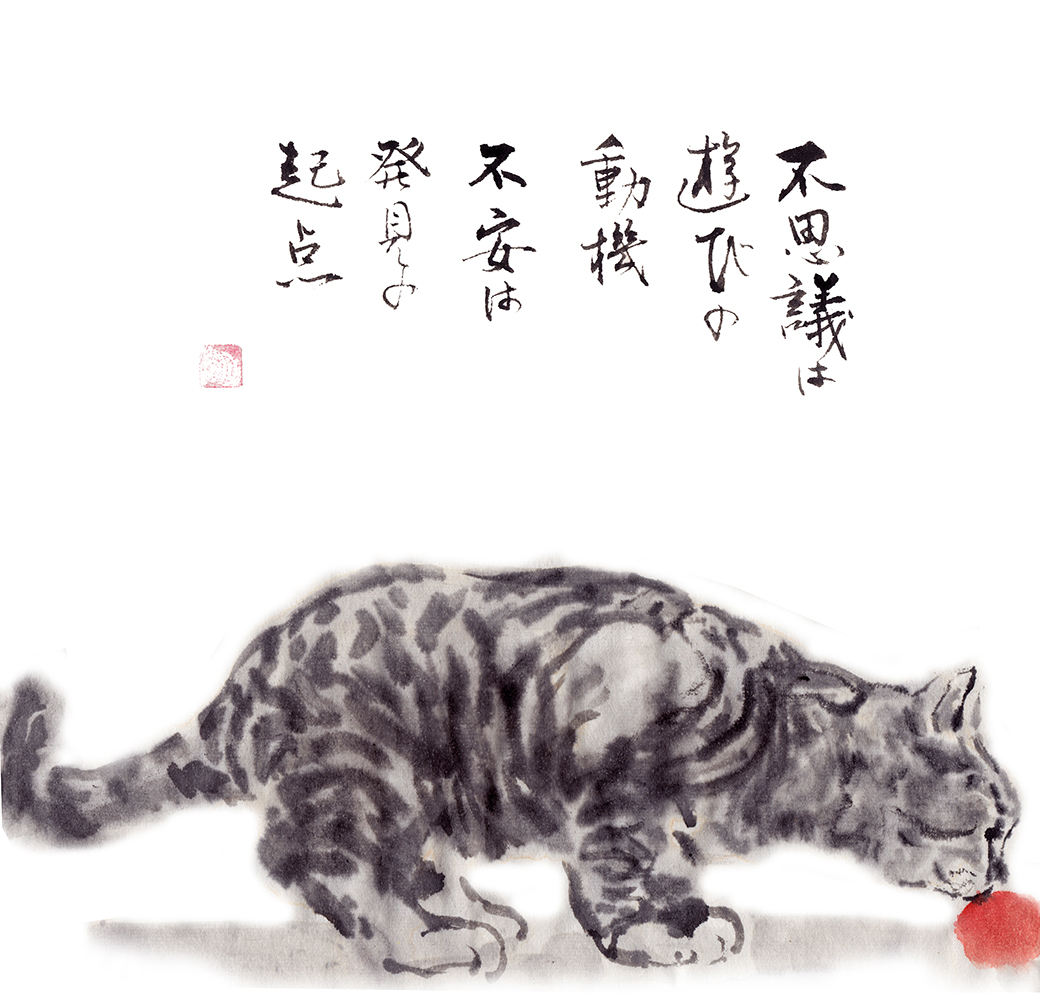 不思議は
遊びの
動機
不安は
発見の
起点